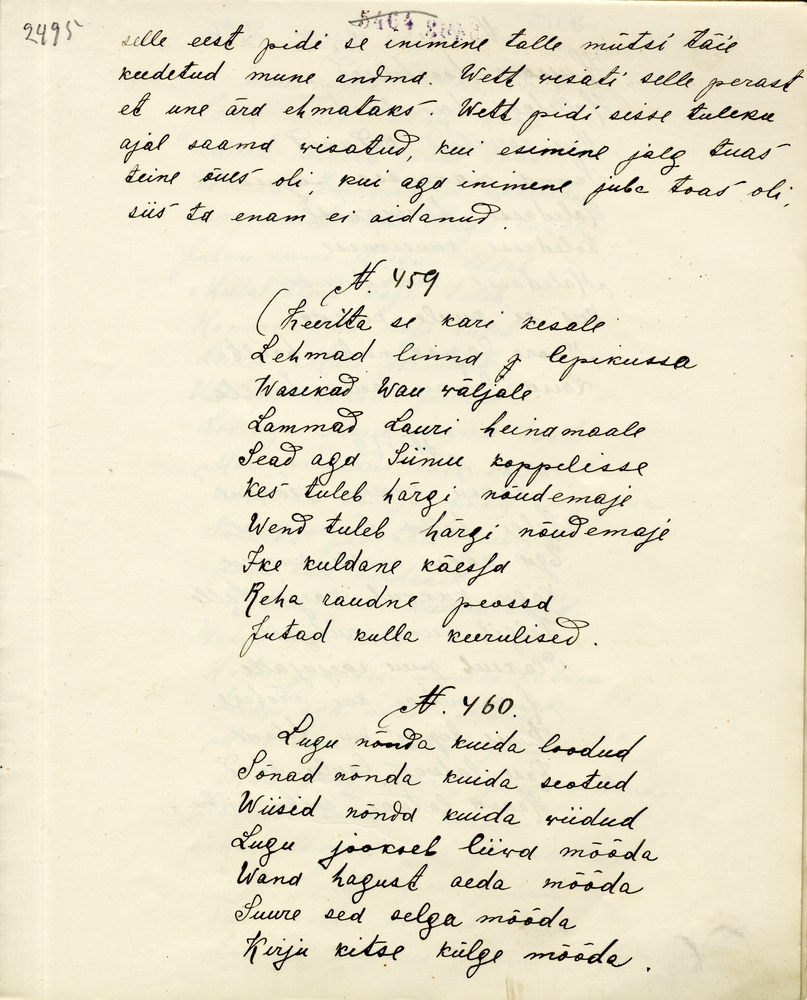 2495
selle eest pidi se inimene talle mütsi täie
keedetud mune andma. Wett wisati selle perast
et une ärd ehmataks. Wett pidi sisse tuleku
ajal saama wisatud, kui esimine jalg tuas
teine õues oli, kui aga inimene juba toas oli,
siis ta enam ei aidanud.
N. 459
(Keerita se kari kesale
Lehmad linnd lepikussa
Wasikad Wau wäljale
Lammad Lauri heinamaale
Sead aga Siimu koppelisse
Kes tuleb härgi nõudemaje
Wend tuleb härgi nõudemaje
Ike kuldane käessa
Reha raudne peossa
Jutad kulla keerulised.
N. 460.
Lugu nõnda kuida loodud
Sõnad nõnda kuida seotud
Wiisid nõnda kuida wiidud
Lugu jookseb liiwa mööda
Wand hagust aeda mööda
Suure sed selga mööda
Kirju kitse külge mööda.